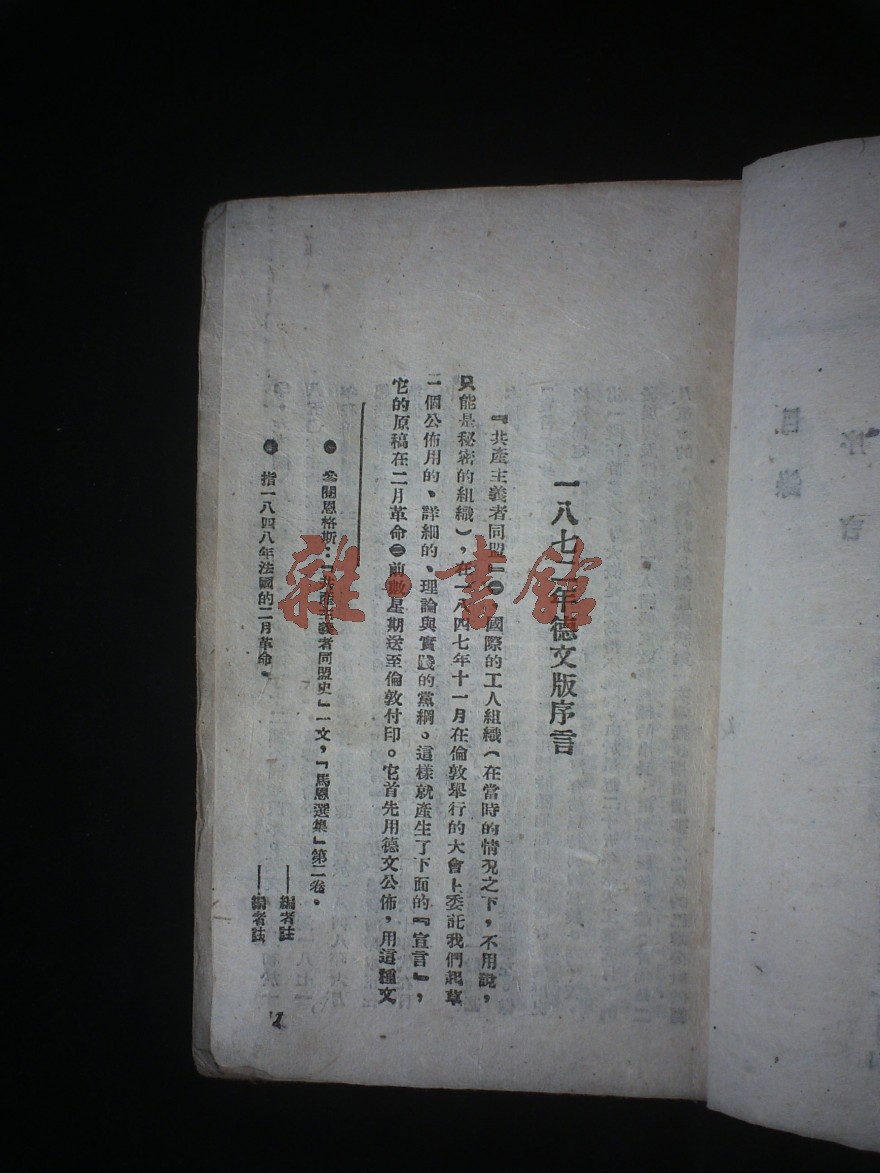 一八七二年德文版序言
『共產主義者同盟』㊀，國際的工人組織（在當時的情況之下，不用說，
只能是秘密的組織），在一八四七年十一月在倫敦舉行的大會上委託我們起草
一個公佈用的、詳細的、理論與實踐的黨綱。這樣就產生了下面的『宣言』，
它的原稿在二月革命㊁前數星期送至倫敦付印。它首先用德文公佈，用這種文
參閱恩格斯：『共產主義者同盟史』一文，『馬恩選集』第二卷。
——編者註
指一八四八年法國的二月革命。
——編者註
序言
目錄
雜·書館